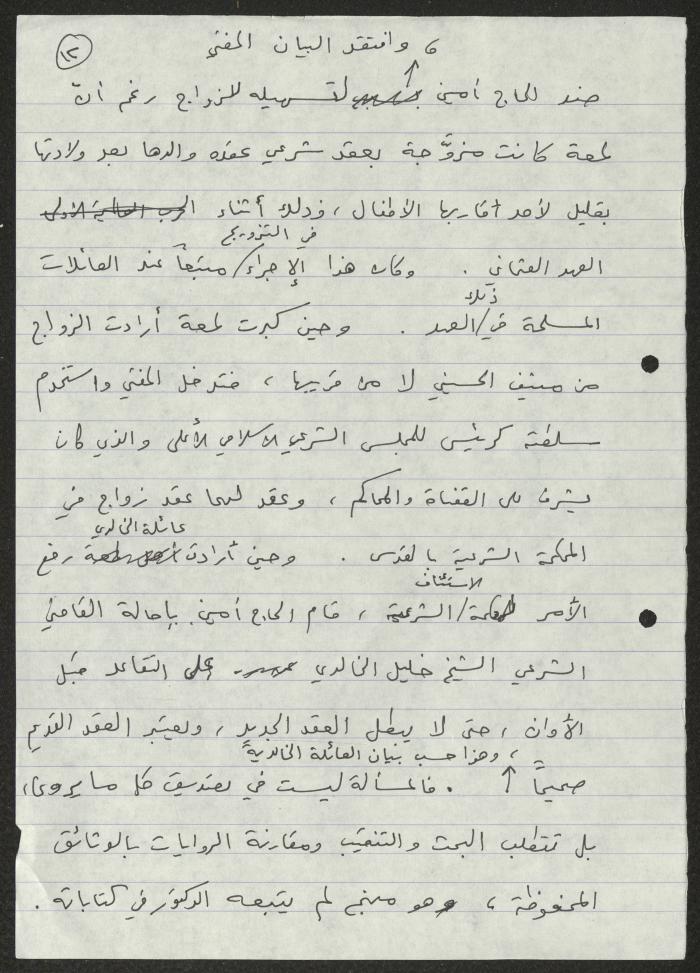 ١٢
، وانتقد البيان المفتي
ضد الحاج أمين لتسهيله للزواج رغم أنّ
لمعة كانت متزوّجة بعقد شرعي عقده والدها بعد ولادتها
بقليل لأحد أقاربها الأطفال ، وذلك أثناء الحرب العالمية الأولى
في التزويج
العهد العثماني . وكان هذا الإجراء/ متبعاً عند العائلات
ذلك
المسلمة في/العهد . وحين كبرت لمعة أرادت الزواج
من منيف الحسيني لا من قريبها ، فتدخل المفتي واستخدم
سلطته كرئيس للمجلس الشرعي الاسلامي الأعلى والذي كان
يشرف على القضاة والمحاكم ، وعقد لهما عقد زواج في
عائلة الخالدي
المحكمة الشرعية بالقدس . وحين أرادت رفع
الاستئناف
الأمر لمحكمة/الشرعية ، قام الحاج أمين بإحالة القاضي
الشرعي الشيخ خليل الخالدي على التقاعد قبل
الأوان ، حتى لا يبطل العقد الجديد ، ويعتبر العقد القديم
، وهذا حسب بيان العائلة الخالدية
صحيحاً . فالمسألة ليست في تصديق كل ما يروى ،
بل تتطلب البحث والتنقيب ومقارنة الروايات بالوثائق
المحفوظة ، وهو منهج لم يتبعه الدكتور في كتاباته .